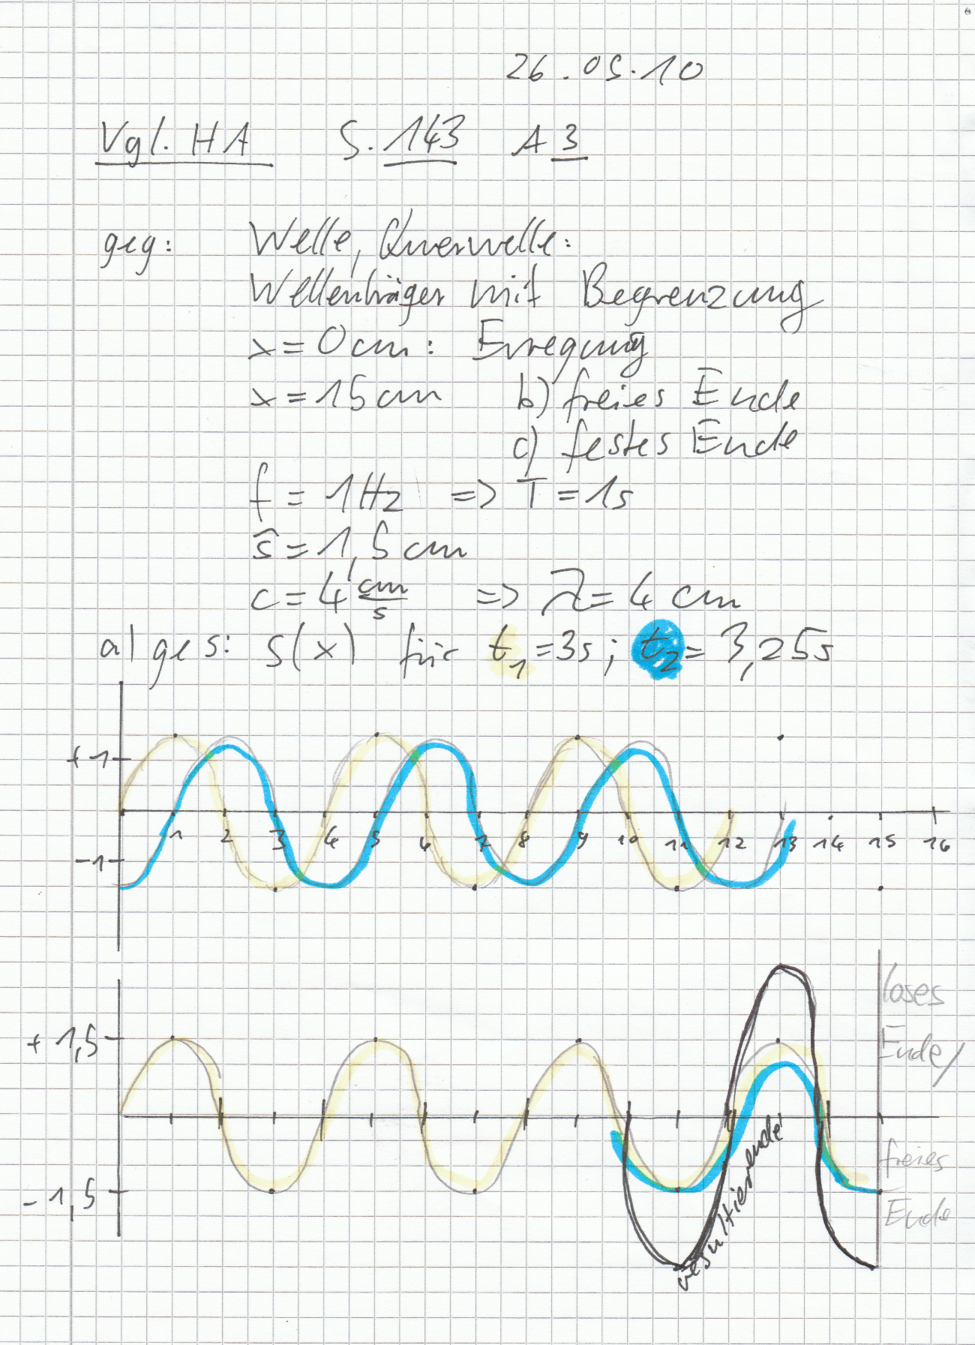 26.05.10
Vgl. HA S. 143 A 3
geg: Welle, Querwelle:
Wellenträger mit Begrenzung
x = 0 cm: Erregung
x = 15 cm b) freies Ende
c) festes Ende
f = 1 Hz => T = 1s
ŝ = 1,5 cm
c = 4 cm/s => λ = 4 cm
a) ges: s(x) für t₁ = 3s; t₂ = 3,25s
+1
1 2 3 4 5 6 7 8 9 10 11 12 13 14 15 16
-1
loses
+1,5 Ende/
freies
-1,5 Ende
resultierende